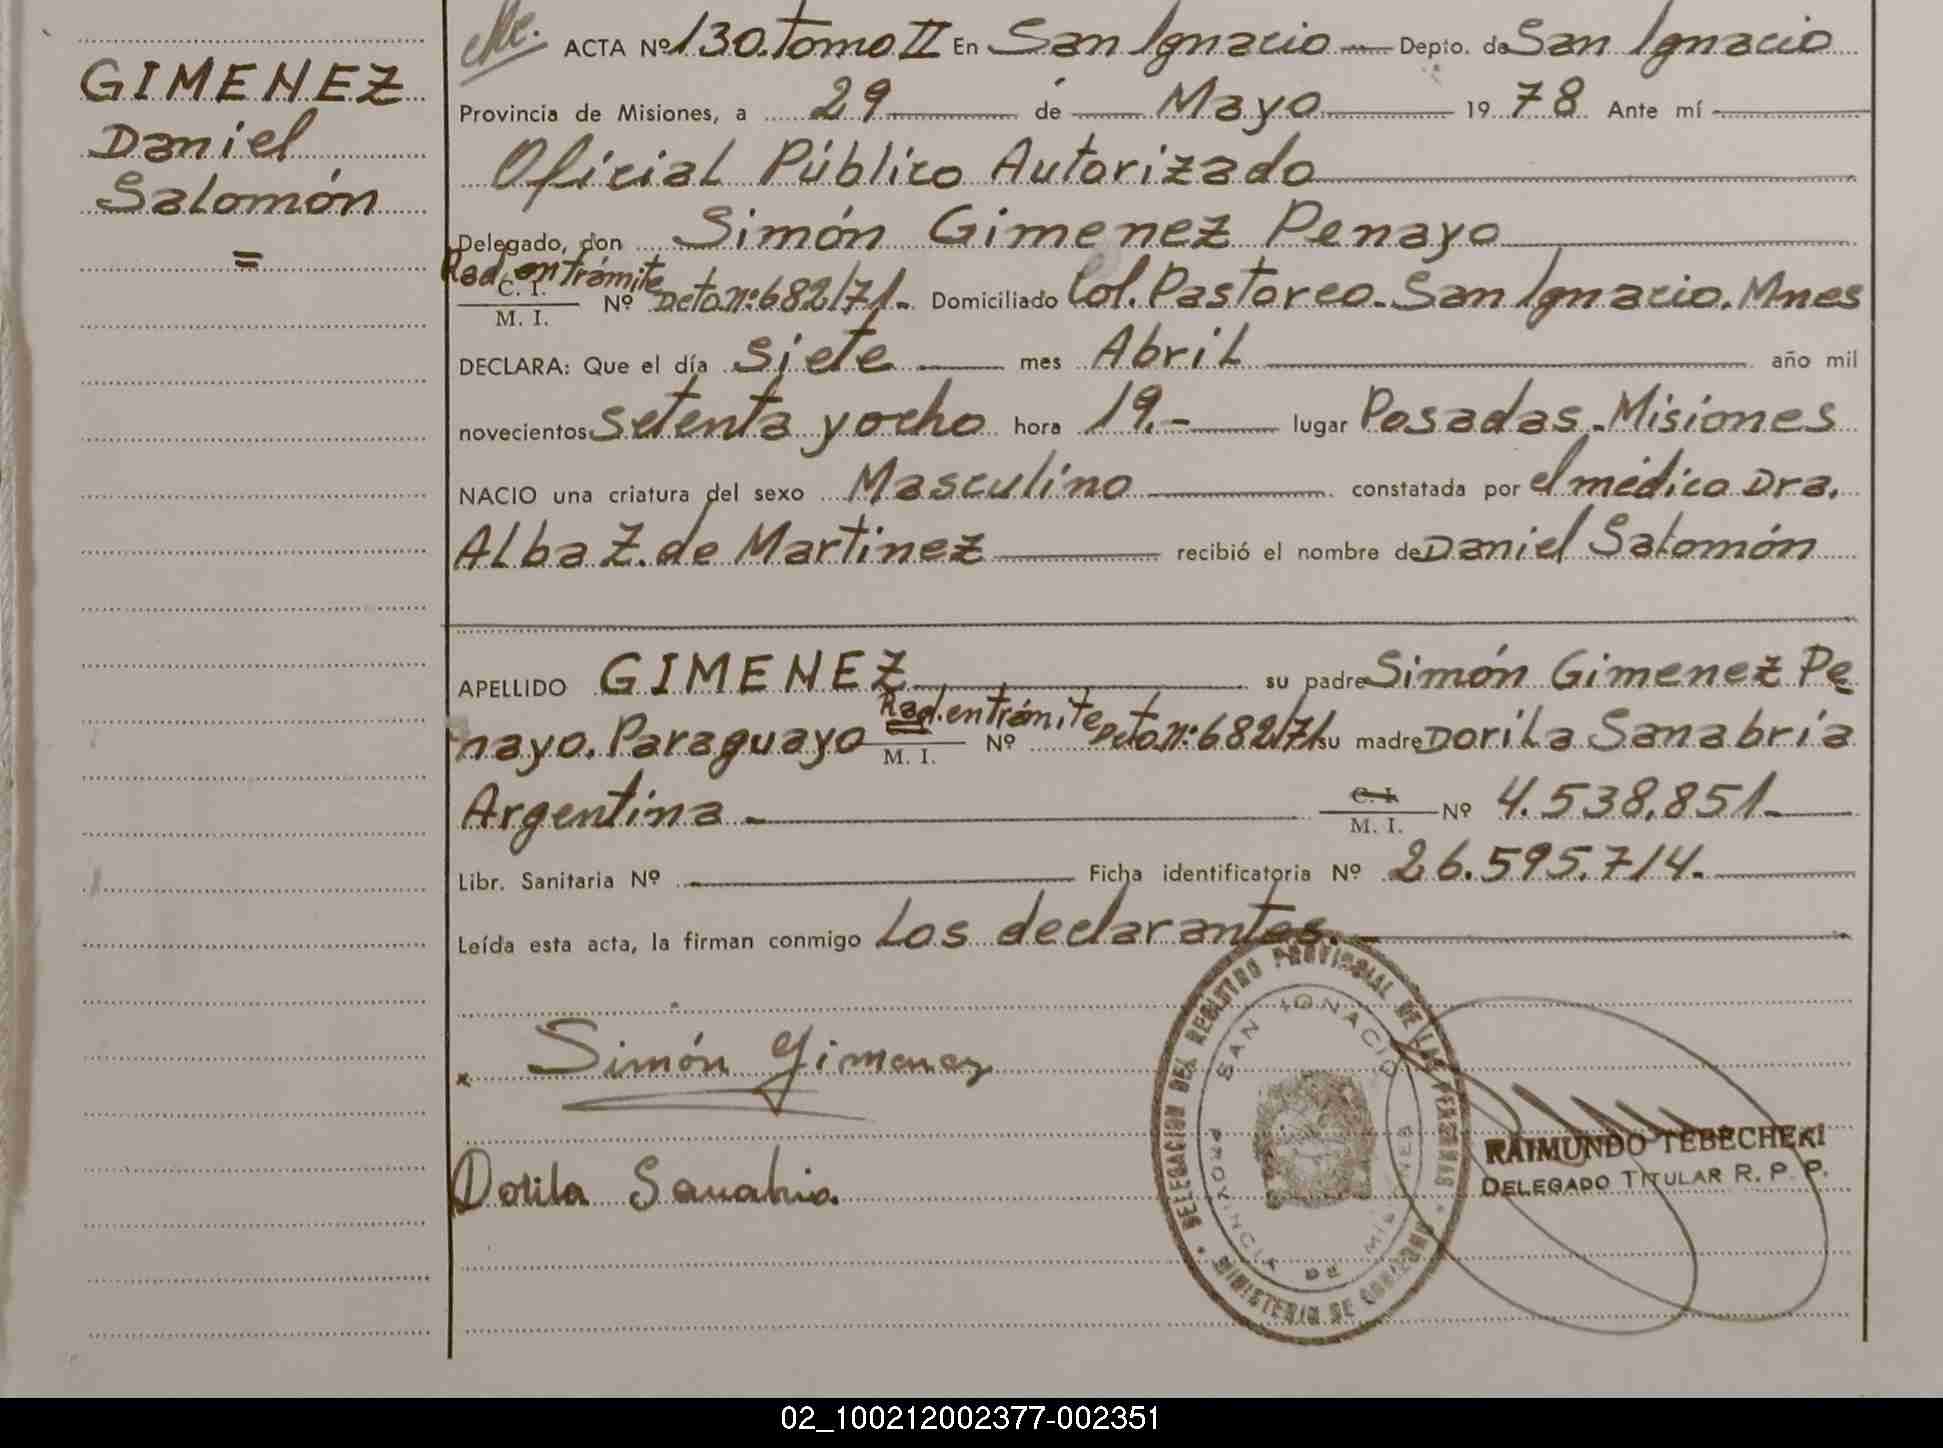 GIMENEZ
Daniel
Salomón
=
ACTA Nº 130. Tomo II En San Ignacio Depto. de San Ignacio
Provincia de Misiones, a 29 de Mayo 1978 Ante mí
Oficial Público Autorizado
Delegado, don Simón Gimenez Penayo
Rad. en trámite
C. I.
M. I. Nº Dcto. nº 682/71.- Domiciliado Col. Pastoreo. San Ignacio. Mnes
DECLARA: Que el día siete mes Abril año mil
novecientos setenta y ocho hora 19.- lugar Posadas. Misiones
NACIO una criatura del sexo Masculino constatada por el médico Dra.
Alba Z. de Martinez recibió el nombre de Daniel Salomón
APELLIDO GIMENEZ su padre Simón Gimenez Pe
nayo. Paraguayo Rad. en trámite M. I. Nº Dcto. nº 682/71 su madre Dorila Sanabria
Argentina - C. I. M. I. Nº 4.538.851-
Libr. Sanitaria Nº Ficha identificatoria Nº 26.595.714.
Leída esta acta, la firman conmigo Los declarantes.-
x Simón Gimenez
Dorila Sanabria
DELEGACION DEL REGISTRO PROVINCIAL DE LAS PERSONAS
SAN IGNACIO
PROVINCIA DE MISIONES
MINISTERIO DE GOBIERNO
RAIMUNDO TEBECHERI
DELEGADO TITULAR R. P. P.
02_100212002377-002351